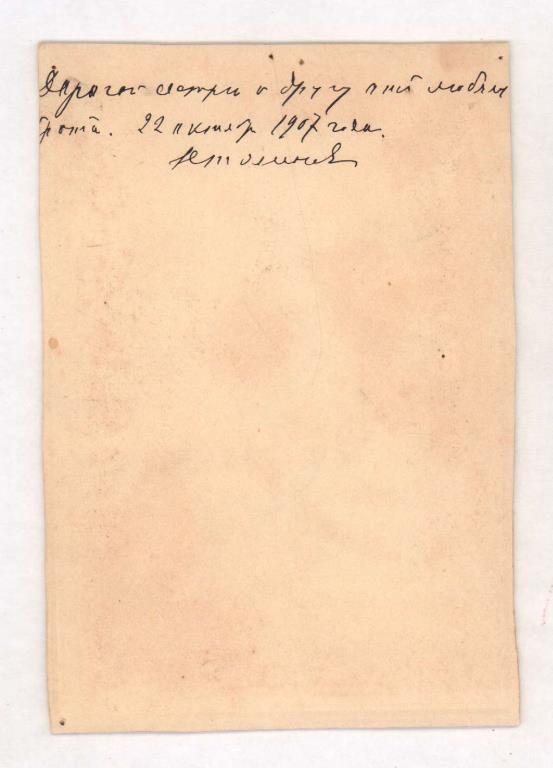 Дорогой сестре и другу от любящ
брата. 22 октября 1907 года.